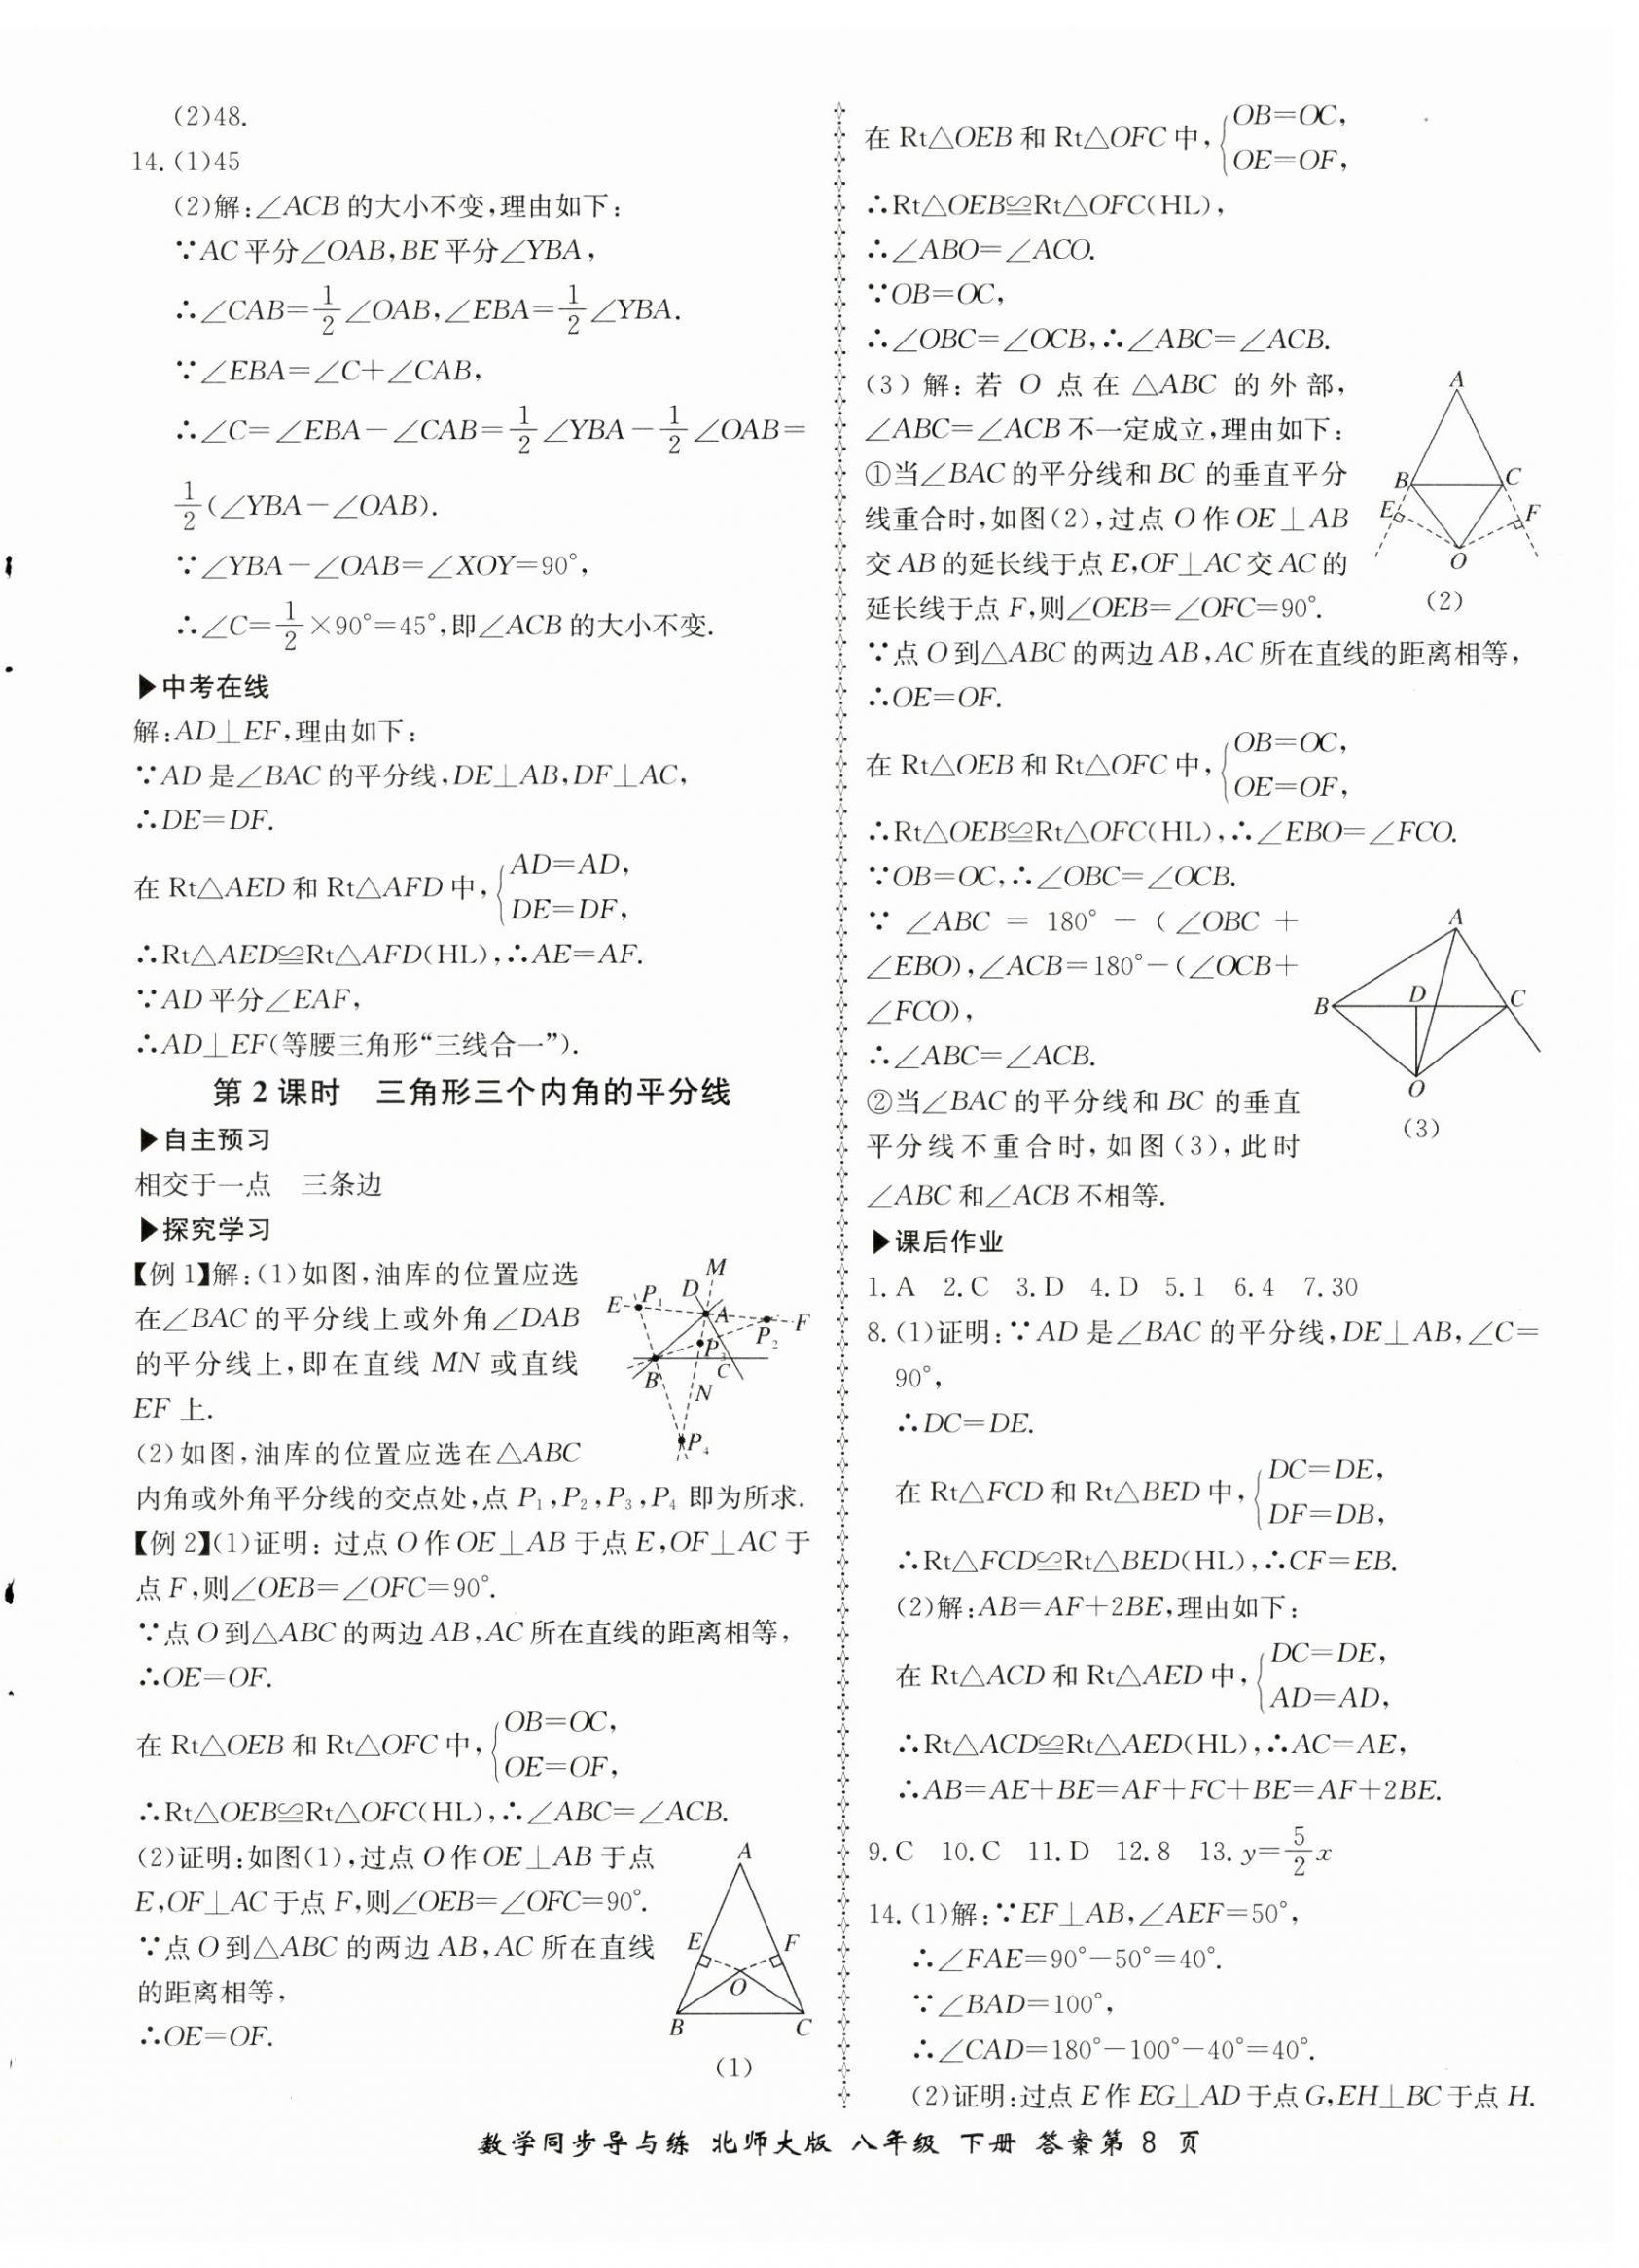 (2)48.
14.(1)45
(2)解:∠ACB的大小不变,理由如下:
∵AC平分∠OAB,BE平分∠YBA,
∴∠CAB=1/2∠OAB,∠EBA=1/2∠YBA.
∵∠EBA=∠C+∠CAB,
∴∠C=∠EBA-∠CAB=1/2∠YBA-1/2∠OAB=
1/2(∠YBA-∠OAB).
∵∠YBA-∠OAB=∠XOY=90°,
∴∠C=1/2×90°=45°,即∠ACB的大小不变.
▶中考在线
解:AD⊥EF,理由如下:
∵AD是∠BAC的平分线,DE⊥AB,DF⊥AC,
∴DE=DF.
在Rt△AED和Rt△AFD中,{AD=AD,
DE=DF,
∴Rt△AED≌Rt△AFD(HL),∴AE=AF.
∵AD平分∠EAF,
∴AD⊥EF(等腰三角形“三线合一”).
第2课时 三角形三个内角的平分线
▶自主预习
相交于一点 三条边
▶探究学习
【例1】解:(1)如图,油库的位置应选
在∠BAC的平分线上或外角∠DAB
的平分线上,即在直线MN或直线
EF上.
(2)如图,油库的位置应选在△ABC
内角或外角平分线的交点处,点P₁,P₂,P₃,P₄即为所求.
M
D
E
P₁
A
F
P₂
P
B
C
N
P₄
【例2】(1)证明:过点O作OE⊥AB于点E,OF⊥AC于
点F,则∠OEB=∠OFC=90°.
∵点O到△ABC的两边AB,AC所在直线的距离相等,
∴OE=OF.
在Rt△OEB和Rt△OFC中,{OB=OC,
OE=OF,
∴Rt△OEB≌Rt△OFC(HL),∴∠ABC=∠ACB.
(2)证明:如图(1),过点O作OE⊥AB于点
E,OF⊥AC于点F,则∠OEB=∠OFC=90°.
∵点O到△ABC的两边AB,AC所在直线
的距离相等,
∴OE=OF.
A
E
F
O
B
C
(1)
在Rt△OEB和Rt△OFC中,{OB=OC,
OE=OF,
∴Rt△OEB≌Rt△OFC(HL),
∴∠ABO=∠ACO.
∵OB=OC,
∴∠OBC=∠OCB,∴∠ABC=∠ACB.
(3)解:若O点在△ABC的外部,
∠ABC=∠ACB不一定成立,理由如下:
①当∠BAC的平分线和BC的垂直平分
线重合时,如图(2),过点O作OE⊥AB
交AB的延长线于点E,OF⊥AC交AC的
延长线于点F,则∠OEB=∠OFC=90°.
A
B
C
E
F
O
(2)
∵点O到△ABC的两边AB,AC所在直线的距离相等,
∴OE=OF.
在Rt△OEB和Rt△OFC中,{OB=OC,
OE=OF,
∴Rt△OEB≌Rt△OFC(HL),∴∠EBO=∠FCO.
∵OB=OC,∴∠OBC=∠OCB.
∵∠ABC=180°-(∠OBC+
∠EBO),∠ACB=180°-(∠OCB+
∠FCO),
∴∠ABC=∠ACB.
②当∠BAC的平分线和BC的垂直
平分线不重合时,如图(3),此时
∠ABC和∠ACB不相等.
A
B
D
C
O
(3)
▶课后作业
1.A 2.C 3.D 4.D 5.1 6.4 7.30
8.(1)证明:∵AD是∠BAC的平分线,DE⊥AB,∠C=
90°,
∴DC=DE.
在Rt△FCD和Rt△BED中,{DC=DE,
DF=DB,
∴Rt△FCD≌Rt△BED(HL),∴CF=EB.
(2)解:AB=AF+2BE,理由如下:
在Rt△ACD和Rt△AED中,{DC=DE,
AD=AD,
∴Rt△ACD≌Rt△AED(HL),∴AC=AE,
∴AB=AE+BE=AF+FC+BE=AF+2BE.
9.C 10.C 11.D 12.8 13.y=5/2x
14.(1)解:∵EF⊥AB,∠AEF=50°,
∴∠FAE=90°-50°=40°.
∵∠BAD=100°,
∴∠CAD=180°-100°-40°=40°.
(2)证明:过点E作EG⊥AD于点G,EH⊥BC于点H.
数学同步导与练 北师大版 八年级 下册 答案第 8 页